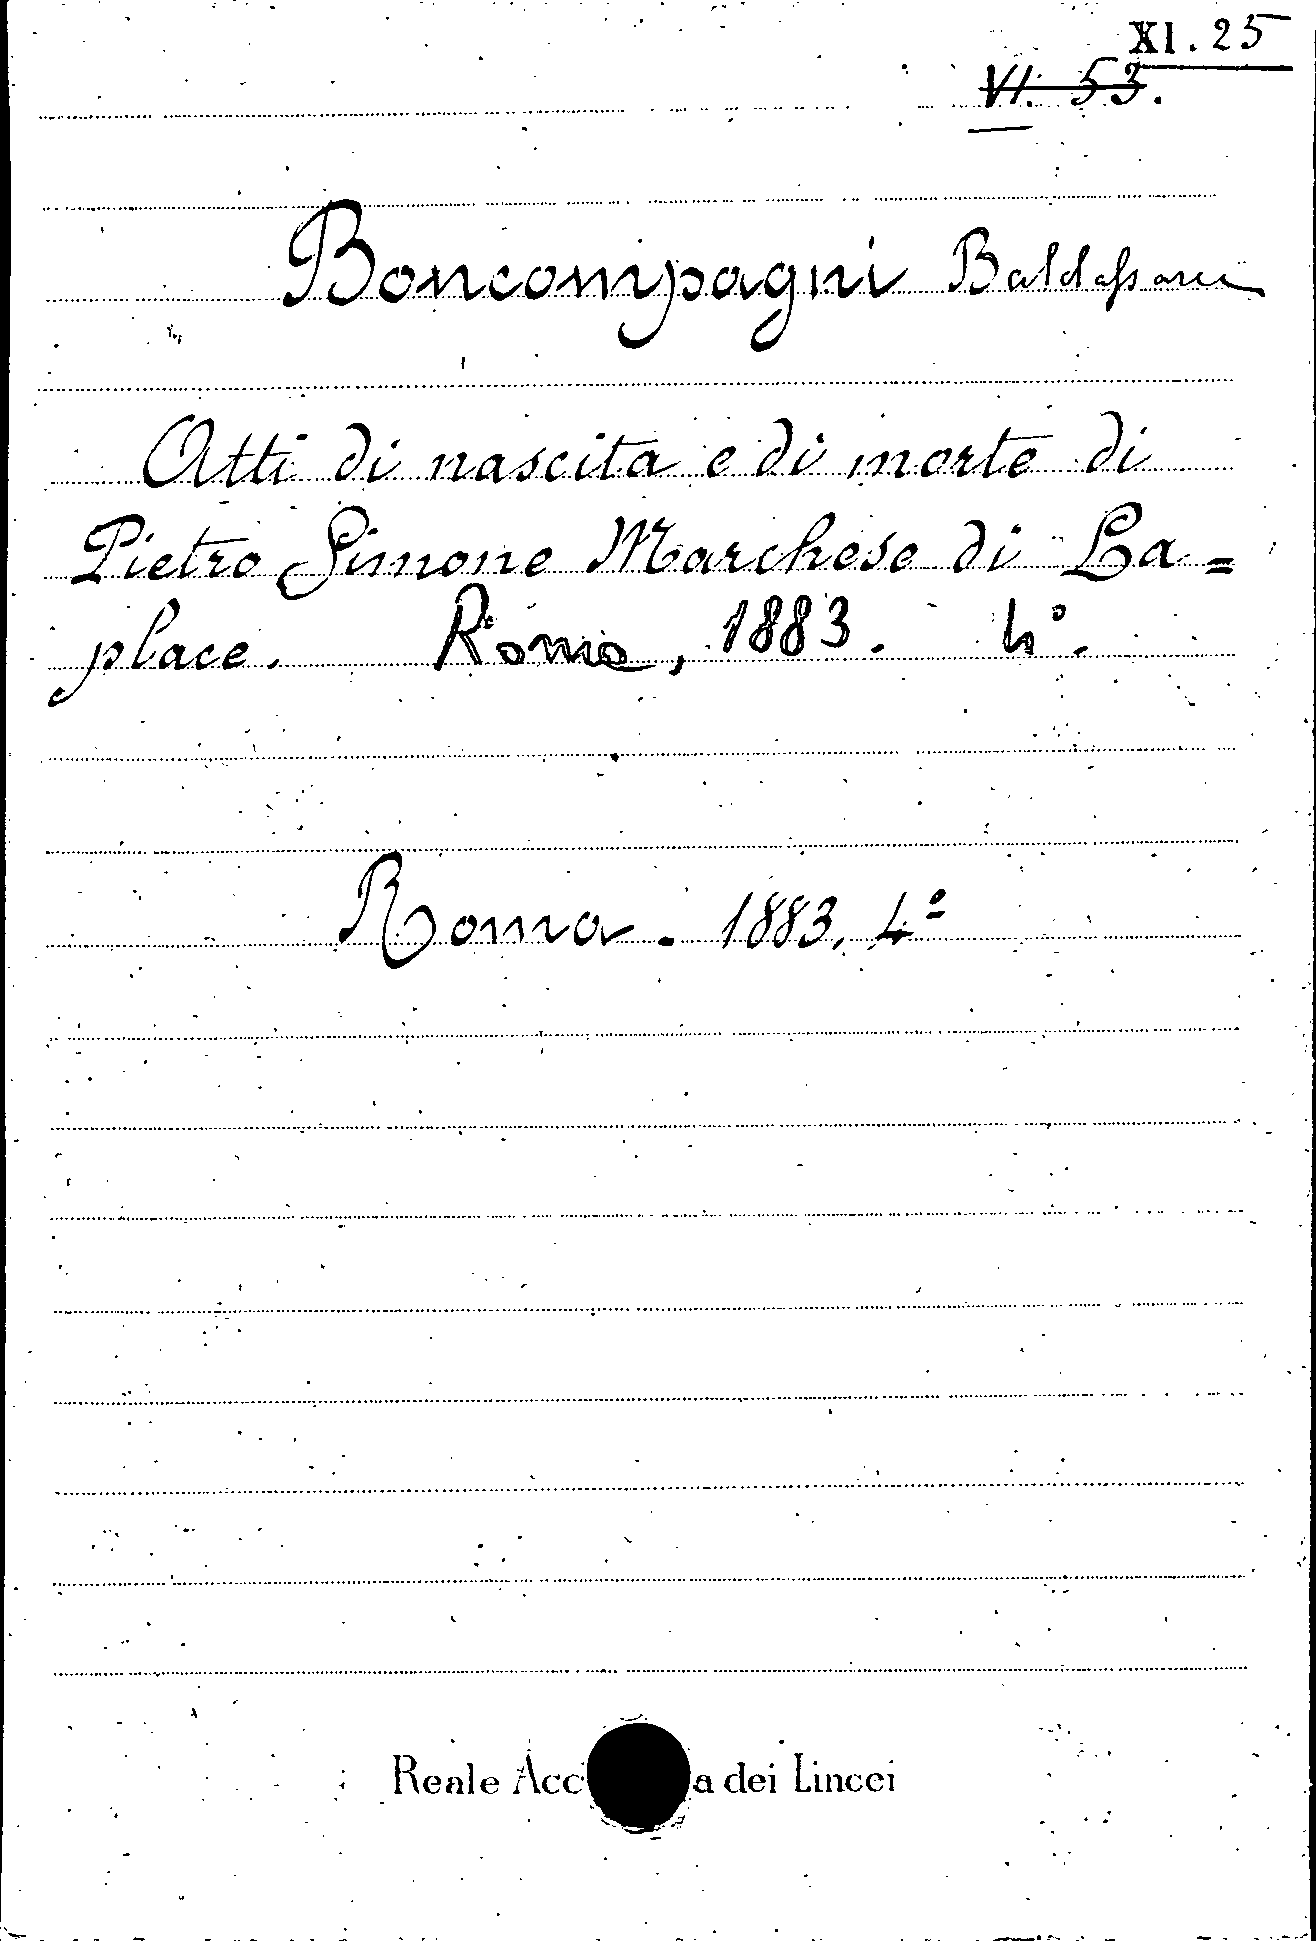 XI. 25
VI. 53.
Boncompagni Baldassarre
Atti di nascita e di morte di
Pietro Simone Marchese di La=
place. Roma, 1883. 4°.
Roma. 1883. 4°
Reale Acc a dei Lincei